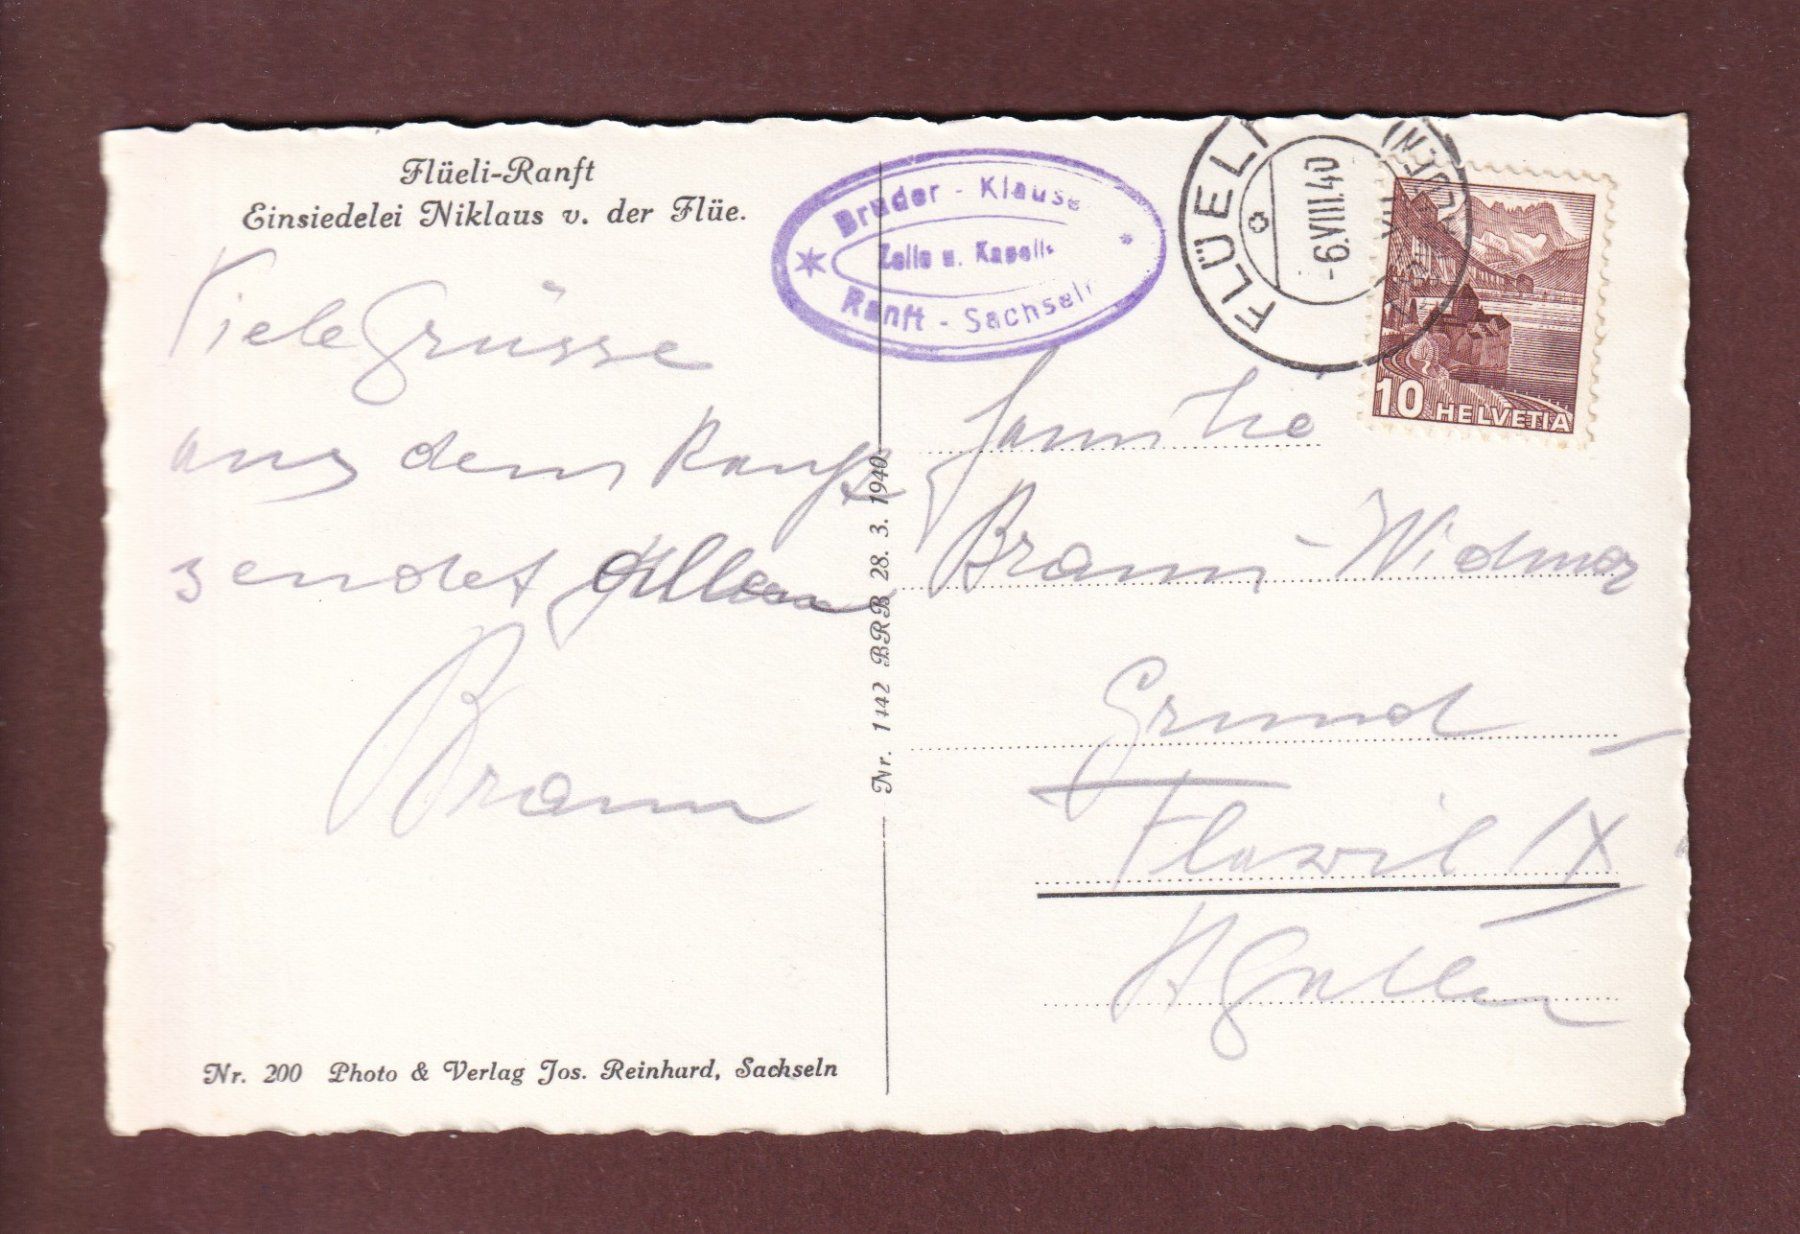 Flüeli-Ranft
Einsiedelei Niklaus v. der Flüe.
Viele Grüsse
aus dem Ranft
sendet
Braun
Nr. 200 Photo & Verlag Jos. Reinhard, Sachseln
Nr. 1442 BRB 28. 3. 1940
Bruder - Klause
Zelle u. Kapelle
Ranft - Sachseln
FLÜELI
-6.VIII.40
10 HELVETIA
Familie
Braun-Widmer
Grund
Flawil